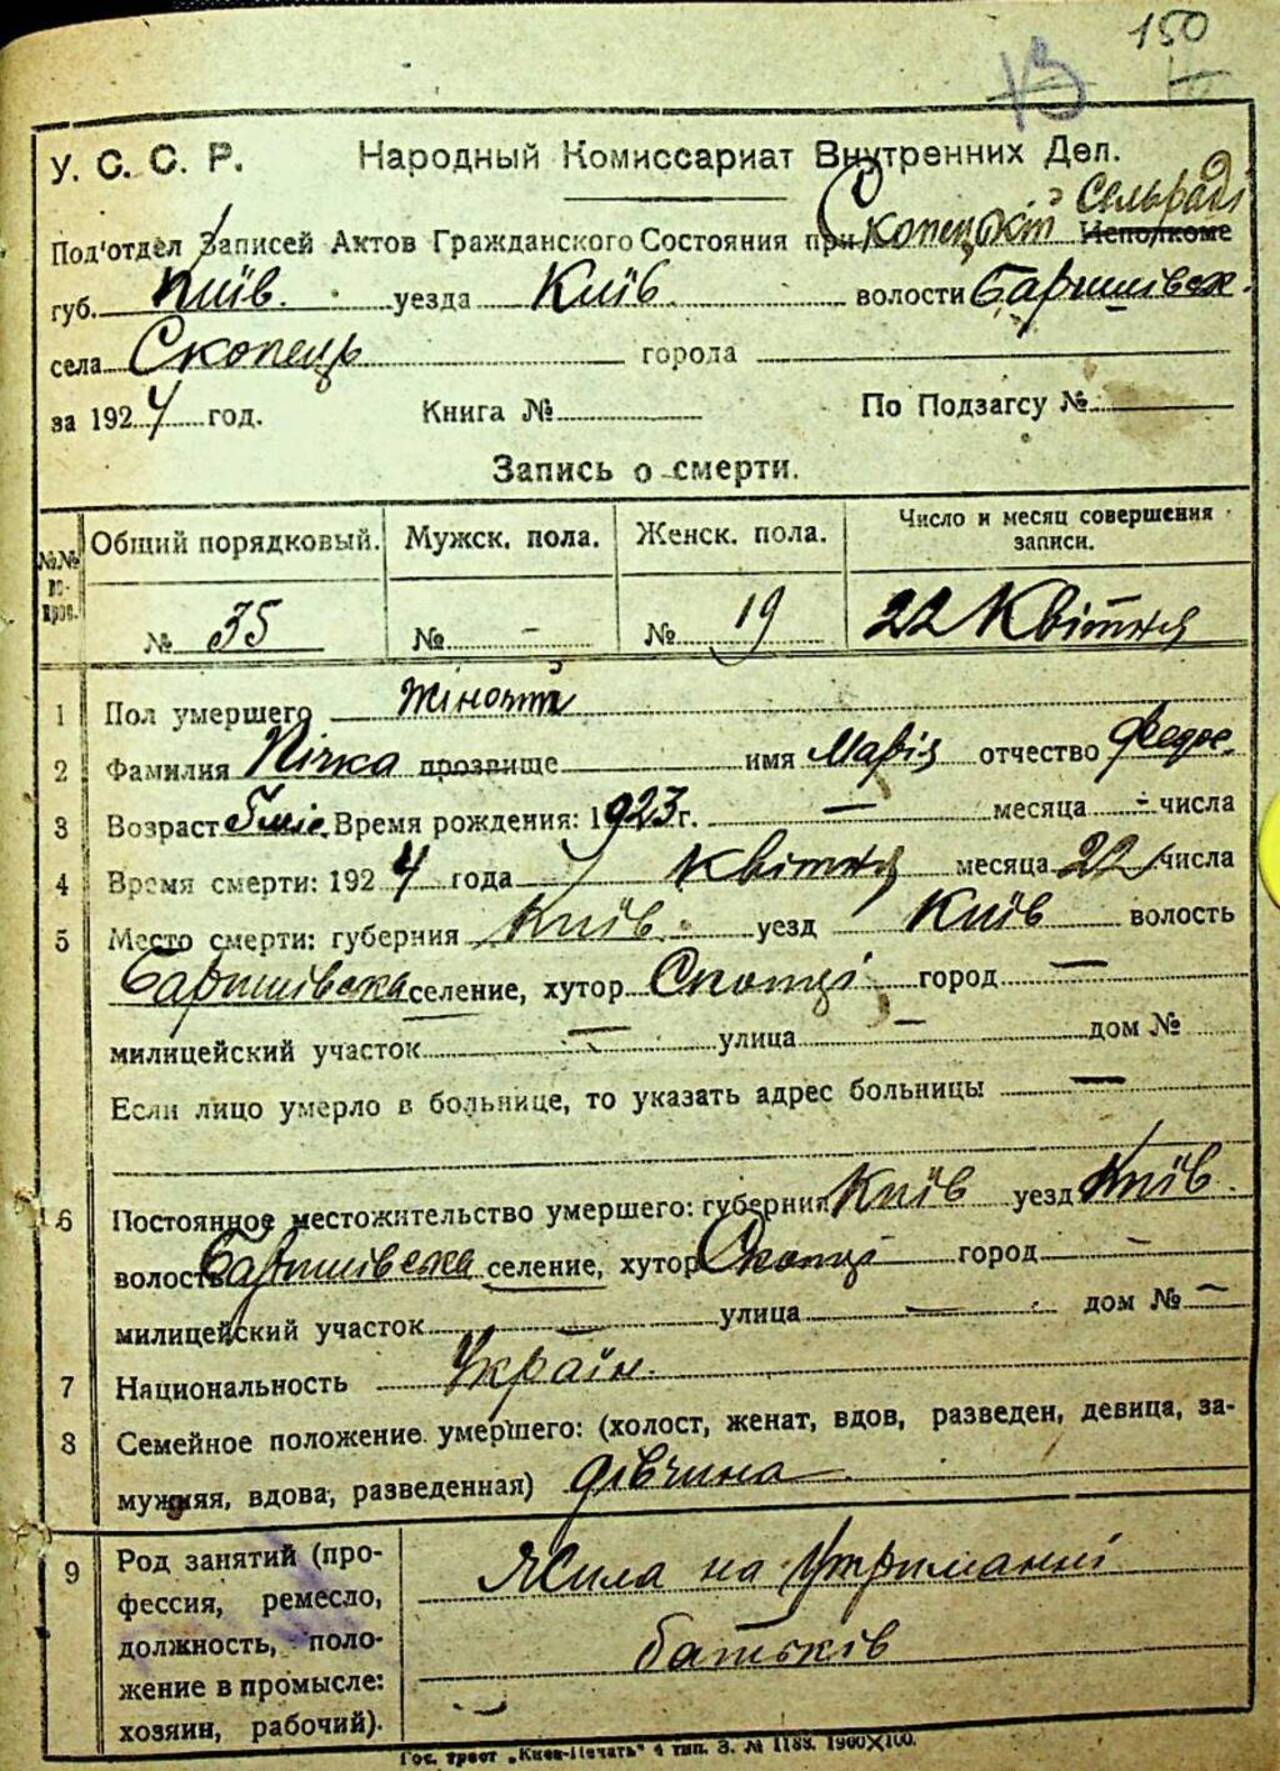 150
13
У. С. С. Р. Народный Комиссариат Внутренних Дел.
Сельраді
Под'отдел Записей Актов Гражданского Состояния при Скопецькій Исполкоме
губ. Київ. уезда Київ. волости Баришівск.
села Скопець города
за 1924 год. Книга № По Подзагсу №
Запись о смерти.
№№ по-прос. Общий порядковый. Мужск. пола. Женск. пола. Число и месяц совершения записи.
№ 35 № — № 19 22 Квітня
1 Пол умершего Жіночій
2 Фамилия Пічка прозвище имя Марія отчество Федос.
3 Возраст 5 міс. Время рождения: 1923 г. — месяца - числа
4 Время смерти: 1924 года Квітня месяца 22 числа
5 Место смерти: губерния Київ. уезд Київ волость
Баришівска селение, хутор Скопці город —
милицейский участок — улица — дом №
Если лицо умерло в больнице, то указать адрес больницы —
6 Постоянное местожительство умершего: губерния Київ уезд Київ.
волость Баришівска селение, хутор Скопці город —
милицейский участок — улица — дом № —
7 Национальность Україн.
8 Семейное положение умершего: (холост, женат, вдов, разведен, девица, за-
мужняя, вдова, разведенная) дівчина
9 Род занятий (про-
фессия, ремесло,
должность, поло-
жение в промысле:
хозяин, рабочий).
Жила на Утриманні
батьків
Гос. трест „Киев-Печать" 4 тип. З. № 1188. 1900×100.